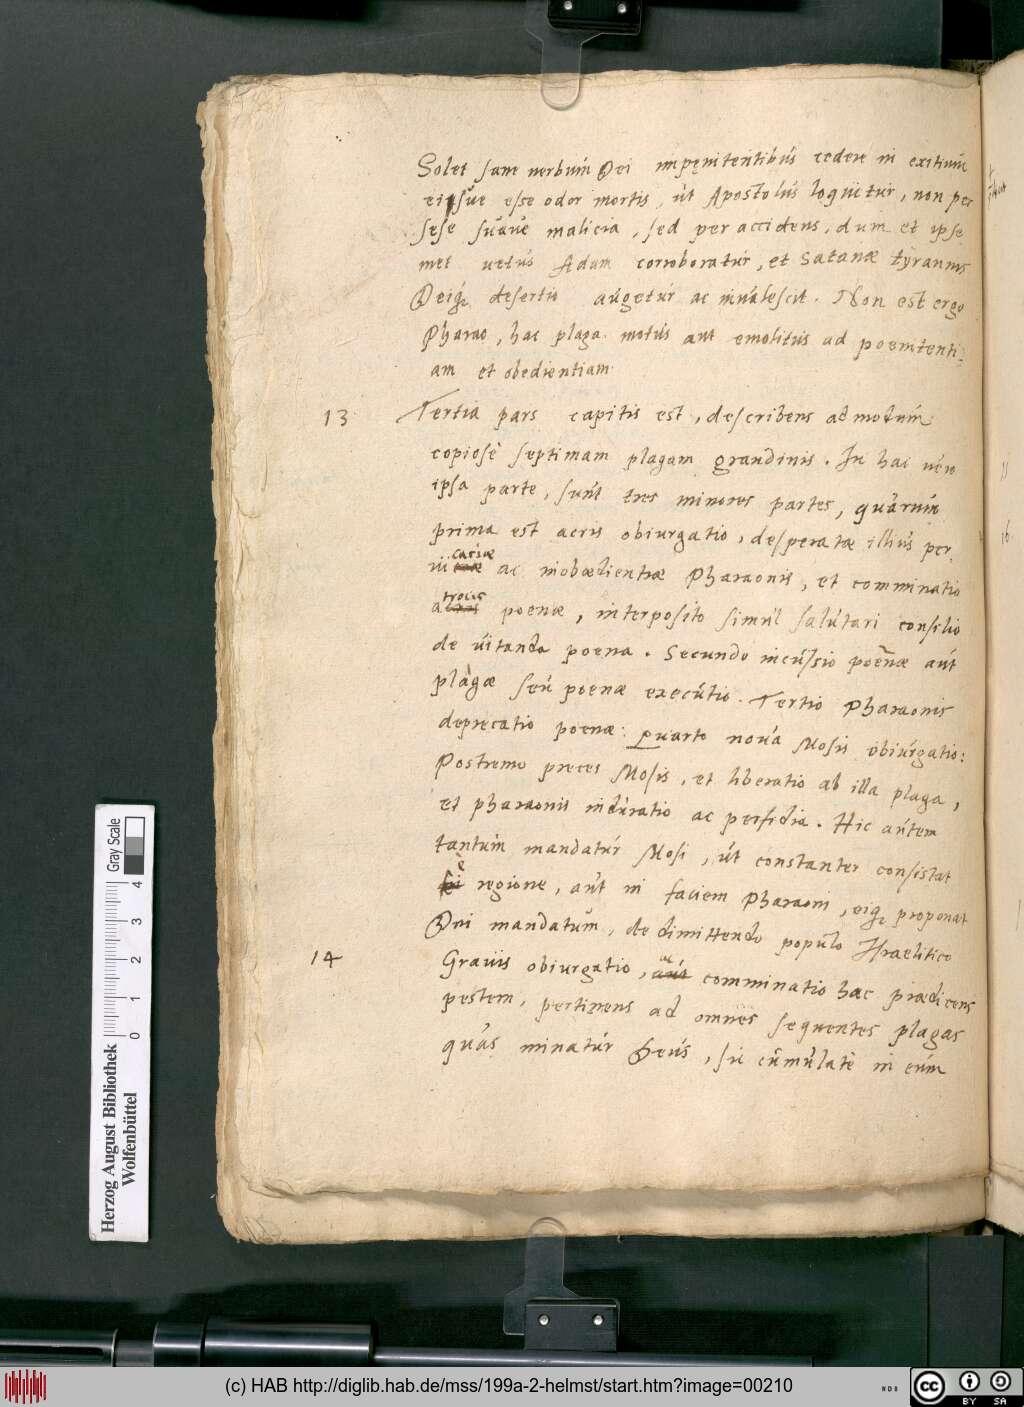 Solet sane uerbum Dei impęnitentibus cedere in exitium
eisque esse odor mortis, ut Apostolus loquitur, non per
sese suaue malicia, sed per accidens, dum et ipse
met uetus Adam corroboratur, et Satanæ tyrannis
Deiq; desertio augetur ac inualescit. Non est ergo
Pharao, hac plaga motus aut emolitus ad poenitenti:
am et obedientiam
13 Tertia pars capitis est, describens admodum
copiosè septimam plagam grandinis. In hac uero
ipsa parte, sunt tres minores partes, quarum
prima est acris obiurgatio, desperatæ illius per
uicaciæ ac inobœdientiæ Pharaonis, et comminatio
atrocis poenæ, interposito simul salutari consilio
de uitanda poena. Secundo incussio poenæ aut
plagæ seu poenæ executio. Tertio Pharaonis
deprecatio poenæ: Quarto noua Mosis obiurgatio:
Postremo preces Mosis, et liberatio ab illa plaga,
et pharaonis induratio ac perfidia. Hic autem
tantum mandatur Mosi, ut constanter consistat
è regione, aut in faciem Pharaoni, eiq; proponat
Dei mandatum, de dimittendo populo Israelitico
14 Grauis obiurgatio, ac comminatio hac prædicens
pestem, pertinens ad omnes sequentes plagas
quas minatur Deus, sic cumulatè in eum
Gray Scale
0 1 2 3 4
Herzog August Bibliothek
Wolfenbüttel
(c) HAB http://diglib.hab.de/mss/199a-2-helmst/start.htm?image=00210
cc BY SA